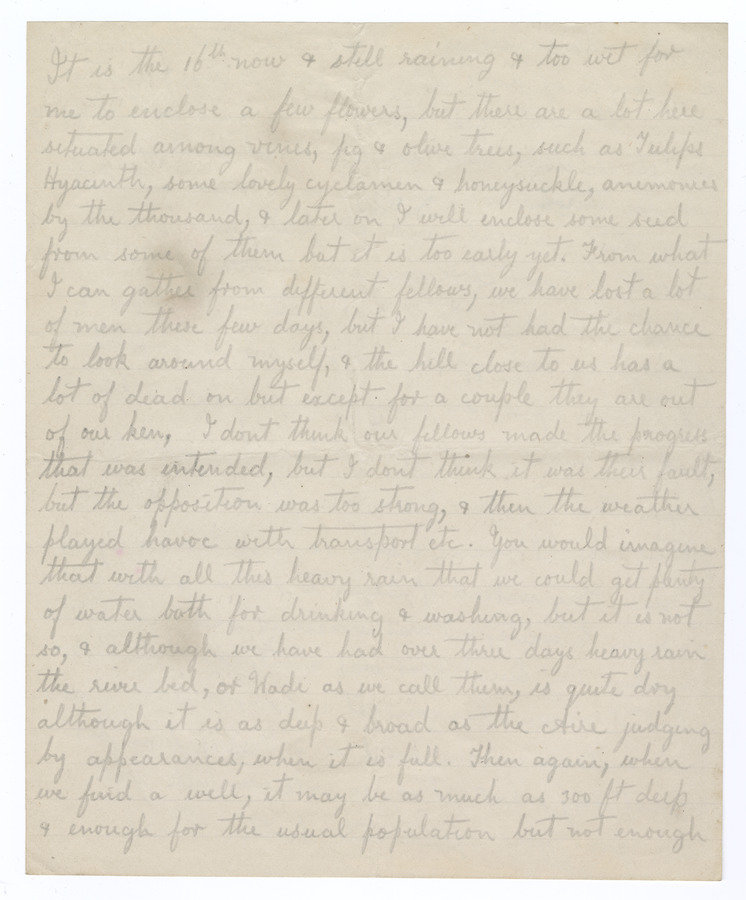 It is the 16th now & still raining & too wet for
me to enclose a few flowers, but there are a lot here
situated among vines, fig & olive trees, such as Tulips
Hyacinth, some lovely cyclamen & honeysuckle, anemonies
by the thousand, & later on I will enclose some seed
from some of them but it is too early yet. From what
I can gather from different fellows, we have lost a lot
of men these few days, but I have not had the chance
to look around myself, & the hill close to us has a
lot of dead on but except for a couple they are out
of our ken, I dont think our fellows made the progress
that was intended, but I dont think it was their fault,
but the opposition was too strong, & then the weather
played havoc with transport etc. You would imagine
that with all this heavy rain that we could get plenty
of water both for drinking & washing, but it is not
so, & although we have had over three days heavy rain
the river bed, or Wadi as we call them, is quite dry
although it is as deep & broad as the Aire judging
by appearances, when it is full. Then again, when
we find a well, it may be as much as 300 ft deep
& enough for the usual population but not enough